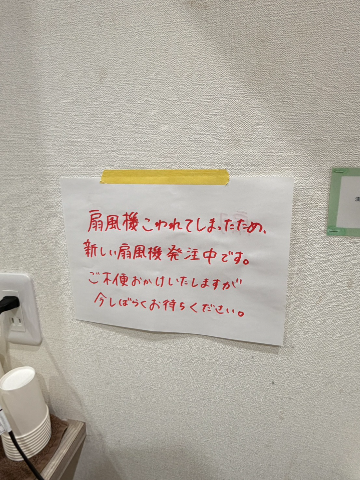 扇風機こわれてしまったため、
新しい扇風機発注中です。
ご不便おかけいたしますが
今しばらくお待ちください。